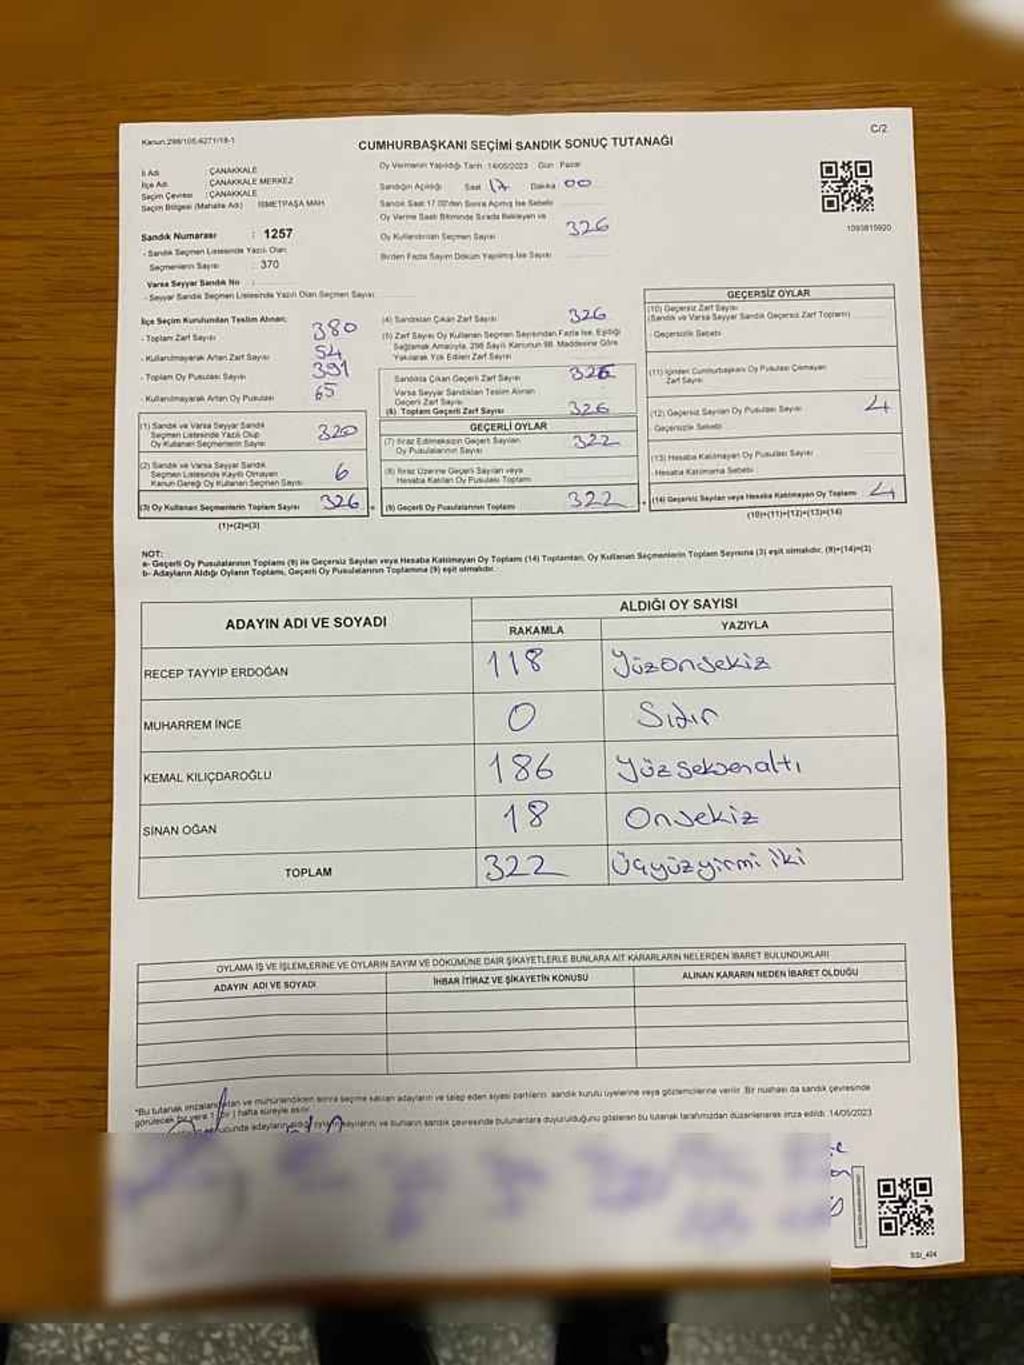 Kanun:298/105-6271/18-1
C/2
CUMHURBAŞKANI SEÇİMİ SANDIK SONUÇ TUTANAĞI
İl Adı : ÇANAKKALE
İlçe Adı : ÇANAKKALE MERKEZ
Seçim Çevresi : ÇANAKKALE
Seçim Bölgesi (Mahalle Adı) : İSMETPAŞA MAH
Sandık Numarası : 1257
- Sandık Seçmen Listesinde Yazılı Olan
Seçmenlerin Sayısı : 370
Varsa Seyyar Sandık No :
- Seyyar Sandık Seçmen Listesinde Yazılı Olan Seçmen Sayısı:
Oy Vermenin Yapıldığı Tarih :14/05/2023 Gün : Pazar
Sandığın Açıldığı Saat 17 Dakika 00
Sandık Saat 17.00'den Sonra Açılmış İse Sebebi
Oy Verme Saati Bitiminde Sırada Bekleyen ve
Oy Kullandırılan Seçmen Sayısı 326
Birden Fazla Sayım Döküm Yapılmış İse Sayısı
1093815920
İlçe Seçim Kurulundan Teslim Alınan;
- Toplam Zarf Sayısı 380
- Kullanılmayarak Artan Zarf Sayısı 54
- Toplam Oy Pusulası Sayısı 391
- Kullanılmayarak Artan Oy Pusulası 65
(1) Sandık ve Varsa Seyyar Sandık
Seçmen Listesinde Yazılı Olup
Oy Kullanan Seçmenlerin Sayısı 320
(2) Sandık ve Varsa Seyyar Sandık
Seçmen Listesinde Kayıtlı Olmayan
Kanun Gereği Oy Kullanan Seçmen Sayısı 6
(3) Oy Kullanan Seçmenlerin Toplam Sayısı 326
(1)+(2)=(3)
(4) Sandıktan Çıkan Zarf Sayısı 326
(5) Zarf Sayısı Oy Kullanan Seçmen Sayısından Fazla İse, Eşitliği
Sağlamak Amacıyla, 298 Sayılı Kanunun 98. Maddesine Göre
Yakılarak Yok Edilen Zarf Sayısı
Sandıkta Çıkan Geçerli Zarf Sayısı 326
Varsa Seyyar Sandıktan Teslim Alınan
Geçerli Zarf Sayısı
(6) Toplam Geçerli Zarf Sayısı 326
GEÇERLİ OYLAR
(7) İtiraz Edilmeksizin Geçerli Sayılan
Oy Pusulalarının Sayısı 322
(8) İtiraz Üzerine Geçerli Sayılan veya
Hesaba Katılan Oy Pusulası Toplamı
(9) Geçerli Oy Pusulalarının Toplamı 322
GEÇERSİZ OYLAR
(10) Geçersiz Zarf Sayısı
(Sandık ve Varsa Seyyar Sandık Geçersiz Zarf Toplamı)
- Geçersizlik Sebebi
(11) İçinden Cumhurbaşkanı Oy Pusulası Çıkmayan
Zarf Sayısı
(12) Geçersiz Sayılan Oy Pusulası Sayısı 4
- Geçersizlik Sebebi
(13) Hesaba Katılmayan Oy Pusulası Sayısı
- Hesaba Katılmama Sebebi
(14) Geçersiz Sayılan veya Hesaba Katılmayan Oy Toplamı 4
(10)+(11)+(12)+(13)=(14)
NOT:
a- Geçerli Oy Pusulalarının Toplamı (9) ile Geçersiz Sayılan veya Hesaba Katılmayan Oy Toplamı (14) Toplamları, Oy Kullanan Seçmenlerin Toplam Sayısına (3) eşit olmalıdır. (9)+(14)=(3)
b- Adayların Aldığı Oyların Toplamı, Geçerli Oy Pusulalarının Toplamına (9) eşit olmalıdır.
ADAYIN ADI VE SOYADI
ALDIĞI OY SAYISI
RAKAMLA YAZIYLA
RECEP TAYYİP ERDOĞAN 118 Yüzonsekiz
MUHARREM İNCE 0 Sıfır
KEMAL KILIÇDAROĞLU 186 Yüzseksenaltı
SİNAN OĞAN 18 Onsekiz
TOPLAM 322 Üçyüzyirmi iki
OYLAMA İŞ VE İŞLEMLERİNE VE OYLARIN SAYIM VE DÖKÜMÜNE DAİR ŞİKAYETLERLE BUNLARA AİT KARARLARIN NELERDEN İBARET BULUNDUKLARI
ADAYIN ADI VE SOYADI İHBAR İTİRAZ VE ŞİKAYETİN KONUSU ALINAN KARARIN NEDEN İBARET OLDUĞU
*Bu tutanak imzalandıktan ve mühürlendikten sonra seçime katılan adayların ve talep eden siyasi partilerin, sandık kurulu üyelerine veya gözlemcilerine verilir. Bir nüshası da sandık çevresinde
görülecek bir yere 1 (bir) hafta süreyle asılır.
sonucunda adayların aldığı oyun sayılarını ve bunların sandık çevresinde bulunanlara duyurulduğunu gösteren bu tutanak tarafımızdan düzenlenerek imza edildi. 14/05/2023
SSI_404